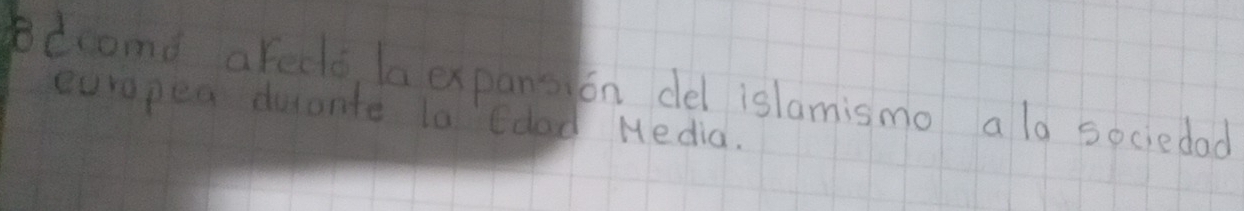 8 ¿como afectó, la expansión del islamismo a la sociedad
europea durante la Edad Media.